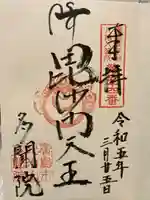 奉拝
令和五年
三月廿五日
毘沙門天王
多聞院